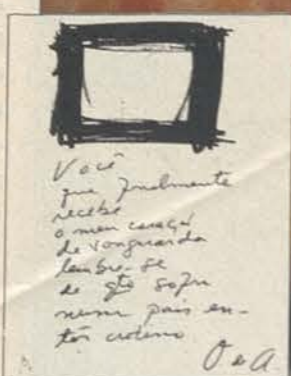 Você
que finalmente
recebe
o meu coração
de vanguarda
lembre-se
de qto sofri
num país en-
tão